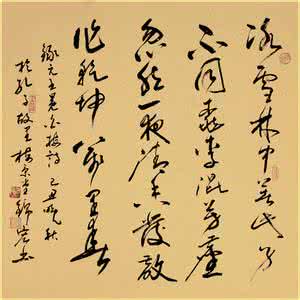 冰雪林中著此身
不同桃李混芳塵
忽然一夜清香發散
作乾坤萬里春
錄元王冕白梅詩己丑晚秋
於孔子故里